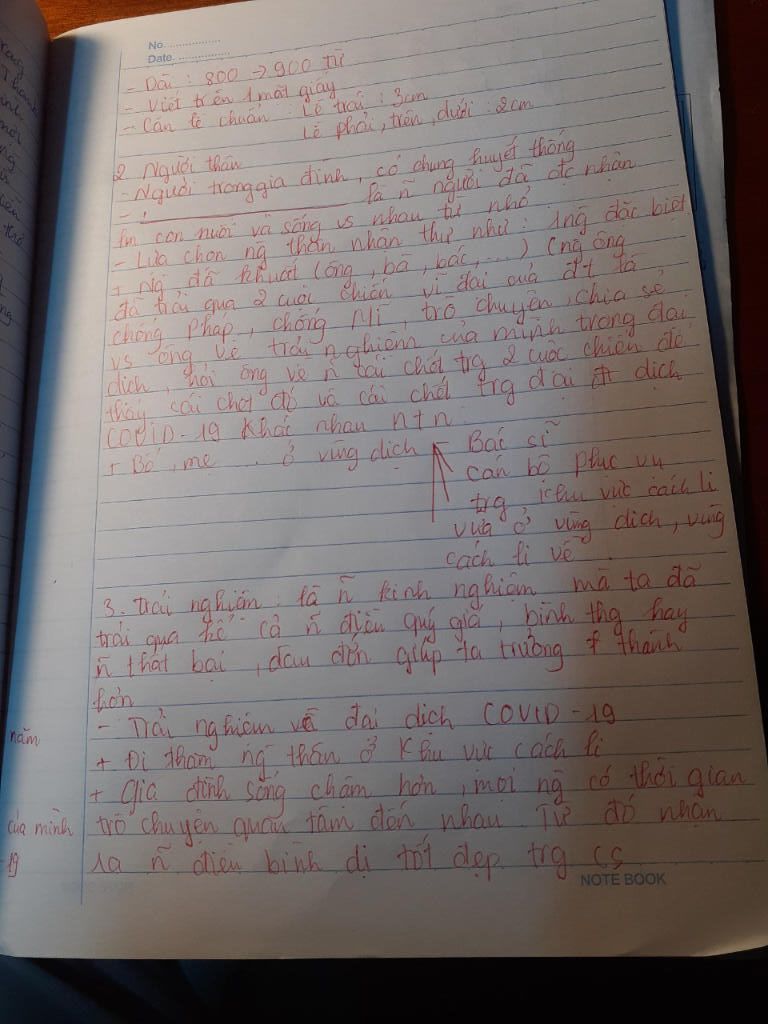 No. ..................
Date. ..................
- Dài : 800 -> 900 từ
- Viết trên 1 mặt giấy
- Căn lề chuẩn : Lề trái : 3cm
Lề phải, trên, dưới : 2cm
2. Người thân
- Người trong gia đình, có chung huyết thống
- ! là ñ người đã đc nhận
làm con nuôi và sống vs nhau từ nhỏ
- Lựa chọn ng thân nhân thư như : 1 ng đặc biệt
+ Ng đã khuất (ông, bà, bác, ...) (ng ông
đã trải qua 2 cuộc chiến vĩ đại của đt là
chống Pháp, chống Mĩ, trò chuyện, chia sẻ
vs ông về trải nghiệm của mình trong đại
dịch, hỏi ông về ñ cái chết trg 2 cuộc chiến để
thấy cái chết đó và cái chết trg đại dịch
COVID-19 khác nhau ntn.
+ Bố, mẹ ... ở vùng dịch - Bác sĩ
cán bộ phục vụ
trg khu vực cách li
vừa ở vùng dịch, vùng
cách li về
3. Trải nghiệm : là ñ kinh nghiệm mà ta đã
trải qua kể cả ñ điều quý giá, bình thg hay
ñ thất bại, đau đớn giúp ta trưởng thành
hơn
- Trải nghiệm về đại dịch COVID-19
+ Đi thăm ng thân ở khu vực cách li
+ Gia đình sống chậm hơn, mọi ng có thời gian
trò chuyện quan tâm đến nhau. Từ đó nhận
ra ñ điều bình dị tốt đẹp trg cs
NOTE BOOK
năm
của mình
19